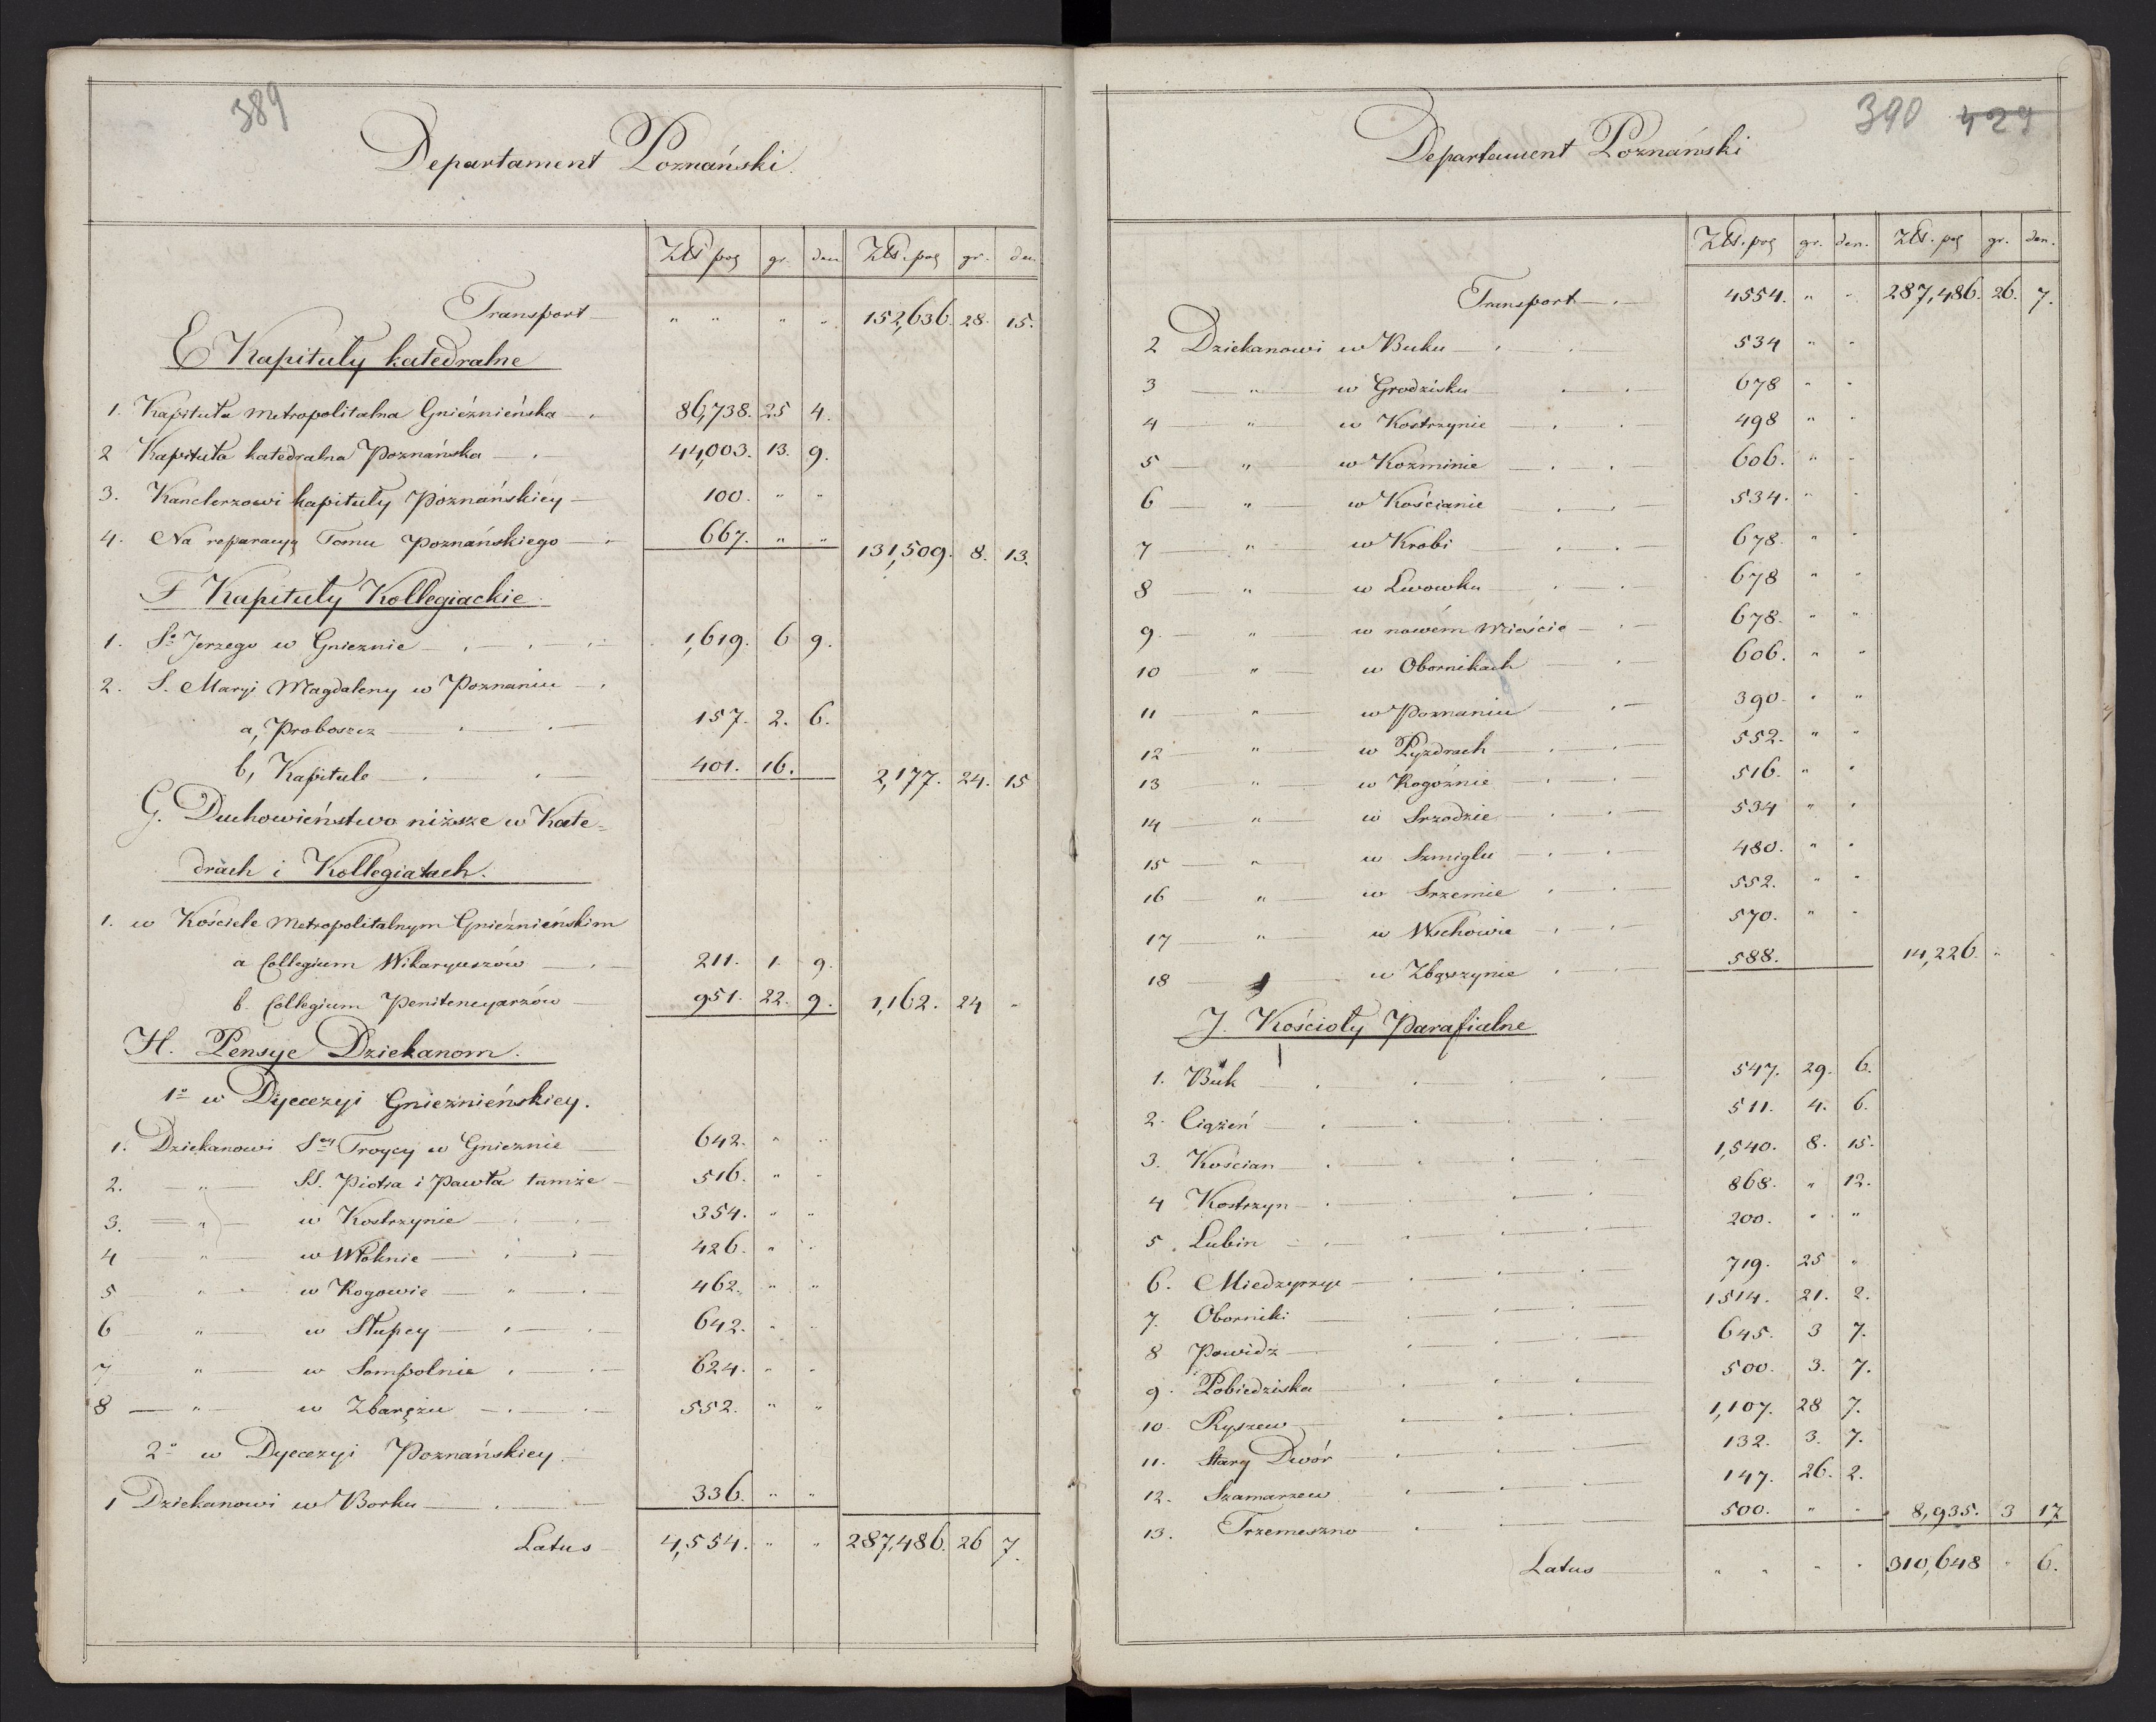 389
Departament Poznański.
Złł pog gr. den Złł. pog gr. den
Transport — " " " " 152,636. 28. 15.
E Kapituły katedralne
1. Kapituła Metropolitalna Gnieźnieńska 86,738. 25 4.
2 Kapituła katedralna Poznańska 44,003. 13. 9.
3. Kanclerzowi kapituły Poznańskiey 100. " "
4. Na reparacyą Tomu Poznańskiego 667. " " 131,509. 8. 13.
F Kapituły Kollegiackie.
1. Sº Jerzego w Gnieznie 1,619. 6 9.
2. S. Maryi Magdaleny w Poznaniu
a, Proboszcz 157. 2. 6.
b, Kapitule 401. 16. 2,177. 24. 15
G. Duchowieństwo niższe w Kate=
drach i Kollegiatach.
1. w Kościele Metropolitalnym Gnieźnieńskim
a Collegium Wikaryuszów 211. 1. 9.
b. Collegium Penitencyarzów 951. 22. 9. 1,162. 24 "
H. Pensye Dziekanom.
1º w Dyecezyi Gnieźnieńskiey.
1. Dziekanowi Sey Troycy w Gnieznie 642. " "
2. " SS. Piotra i Pawła tamże 516. " "
3. " w Kostrzynie 354. " "
4 " w Włoknie 426. " "
5 " w Rogowie 462. " "
6 " w Słupcy 642. " "
7 " w Sompolnie 624. " "
8 " w Zbarężu 552. " "
2º w Dyecezyi Poznańskiey.
1 Dziekanowi w Borku 336. " "
Latus 4,554. " " 287,486. 26 7.
390 429
Departament Poznański
Złł. pog gr. den. Złł. pog gr. den.
Transport 4554. " " 287,486. 26. 7.
2 Dziekanowi w Buku 534 " "
3 " w Grodzisku 678 " "
4 " w Kostrzynie 498 " "
5 " w Kozminie 606. " "
6 " w Kościanie 534. " "
7 " w Krobi 678. " "
8 " w Lwowku 678 " "
9. " w nowém Mieście 678. " "
10 " w Obornikach 606. " "
11 " w Poznaniu 390. " "
12 " w Pyzdrach 552. " "
13 " w Rogoźnie 516. " "
14 " w Srzodzie 534 " "
15 " w Szmiglu 480. " "
16 " w Srzemie 552. " "
17 " w Wschowie 570. " "
18 w Zbąszynie 588. 14,226. " "
J. Kościoły Parafialne
1. Buk 547. 29. 6.
2. Ciążeń 511. 4. 6.
3. Koscian 1,540. 8. 15.
4 Kostrzyn 868. " 12.
5. Lubin 200. " "
6. Miedzyrzyc 719. 25 "
7. Oborniki 1514. 21. 2.
8 Powidz 645. 3 7.
9. Pobiedziska 500. 3. 7.
10. Ryszew 1,107. 28 7.
11. Stary Dwór 132. 3. 7.
12. Szamarzew 147. 26. 2.
13. Trzemeszno 500. " " 8,935. 3 17
Latus " " " " 310,648 " 6.